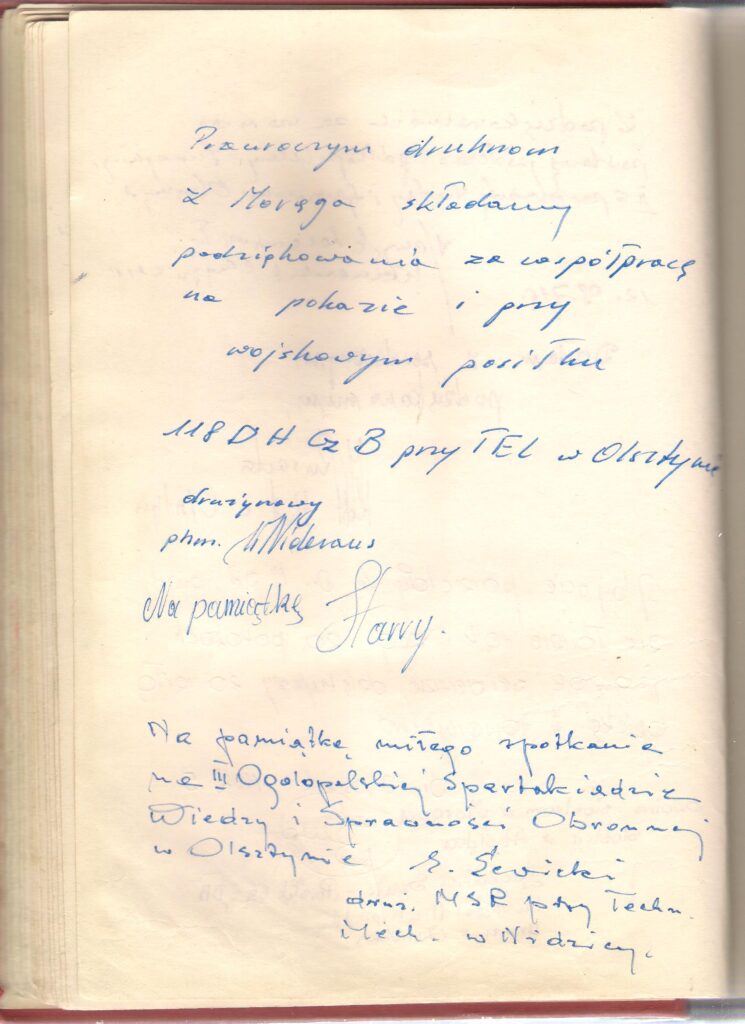 Przeuroczym druhnom
z Morąga składamy
podziękowania za współpracę
na pokazie i przy
wojskowym posiłku
118 D H Cz B przy TEL w Olsztynie
drużynowy
phm.
Na pamiątkę Harry.
Na pamiątkę miłego spotkania
na III Ogólopolskiej Spartakiadzie
Wiedzy i Sprawności Obronnej
w Olsztynie E. Lewicki
druż. MSR przy Techn.
Mech. w Nidzicy.